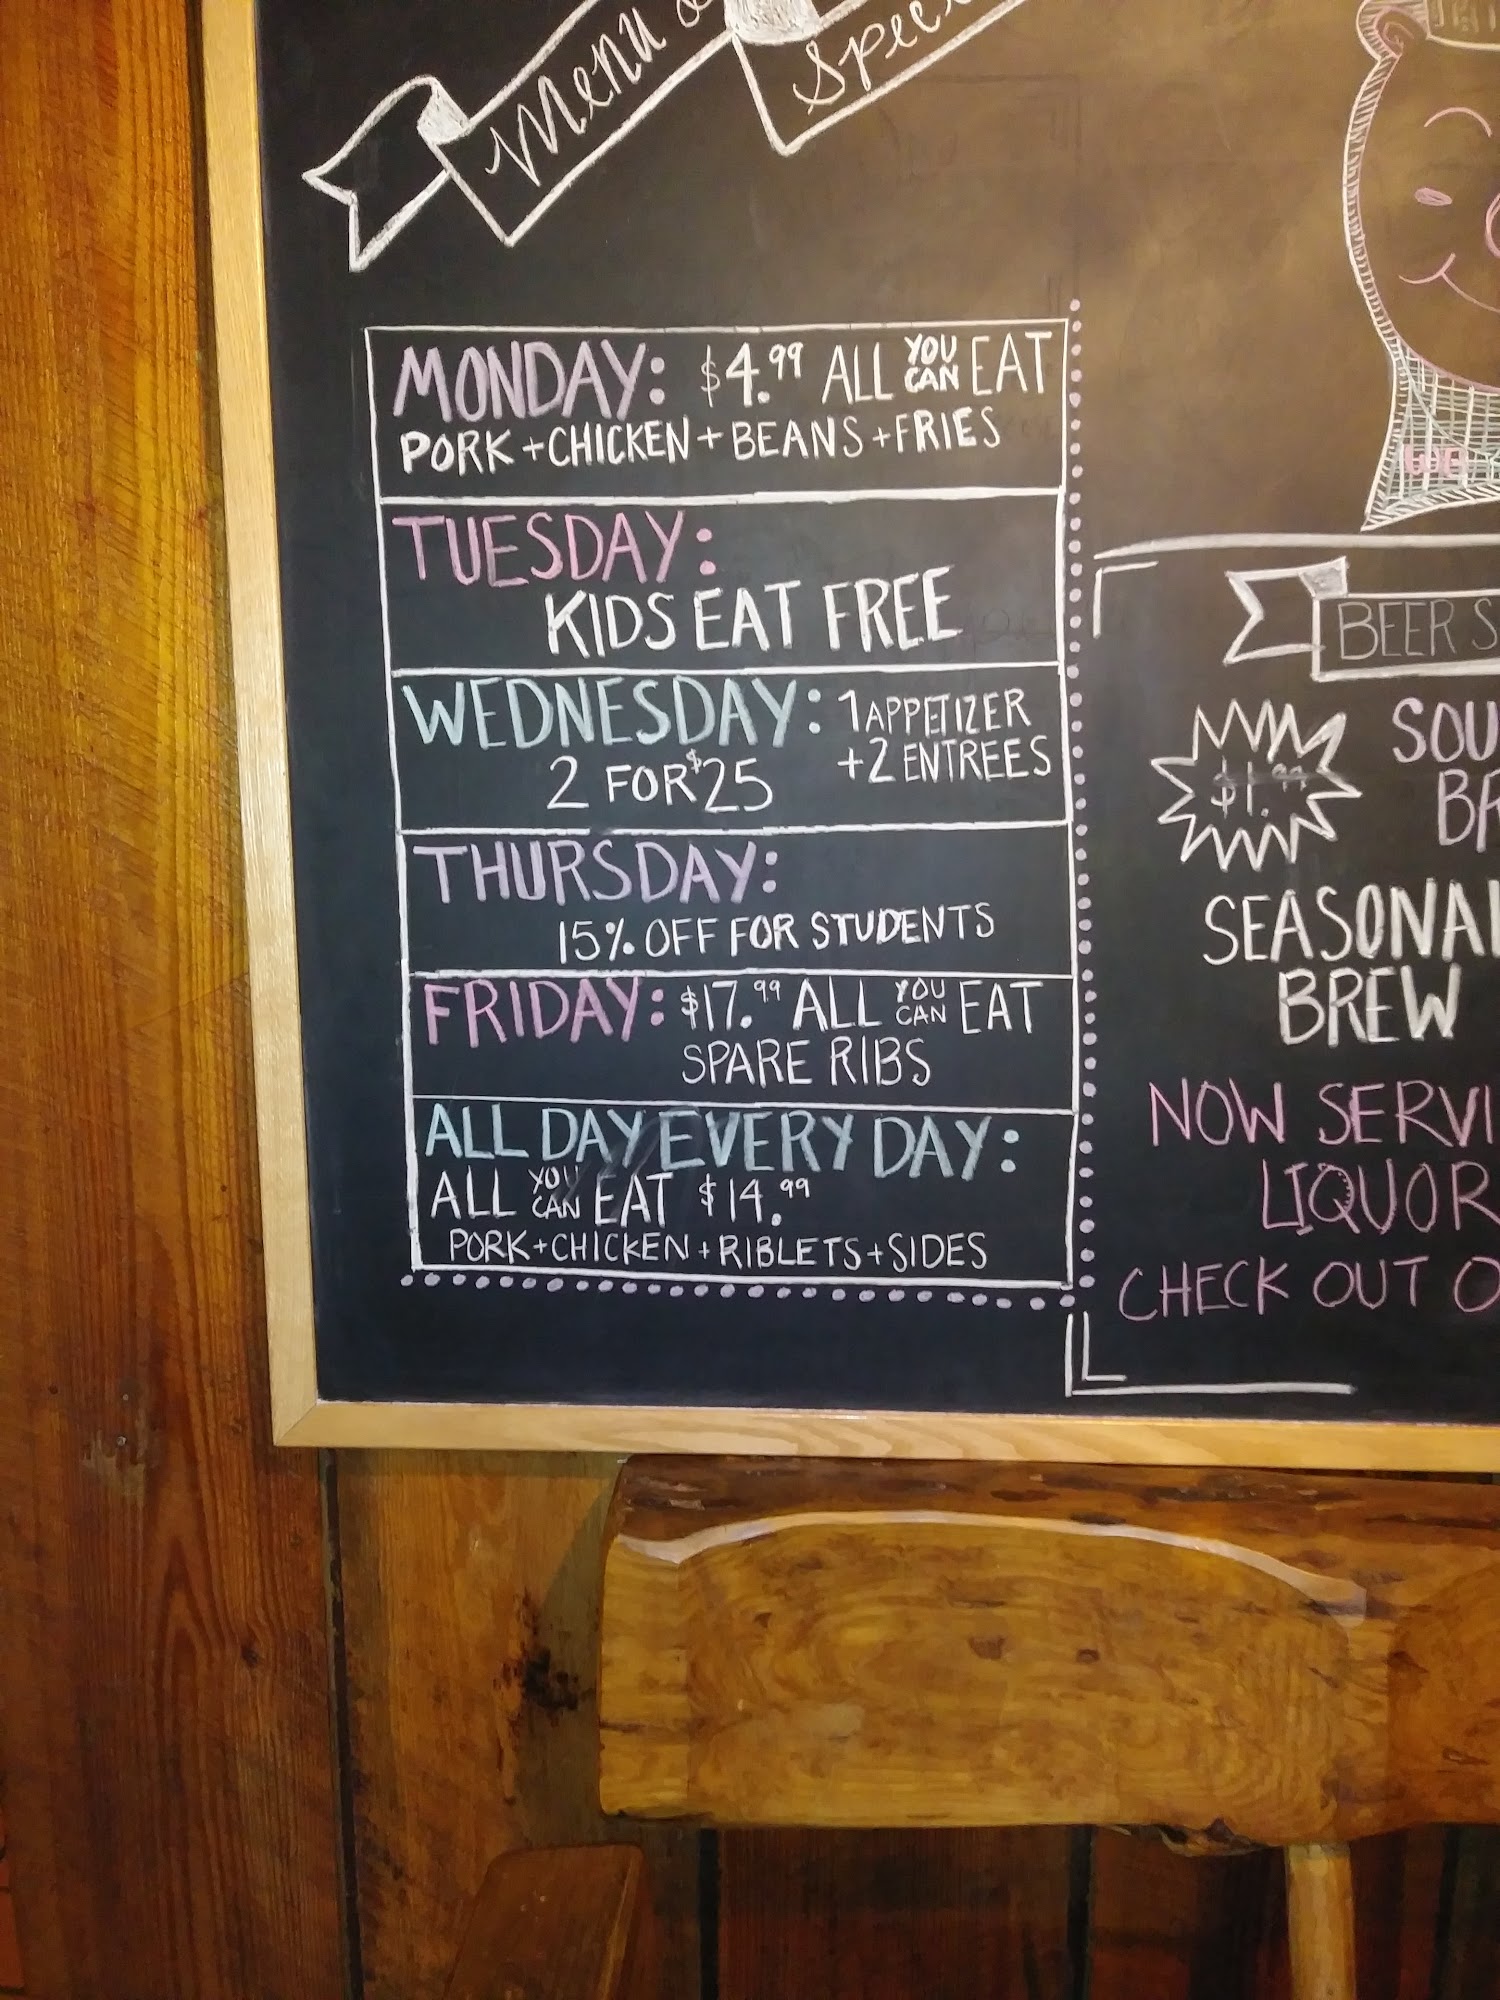 Menu &
MONDAY: $4.99 ALL YOU CAN EAT
PORK + CHICKEN + BEANS + FRIES
TUESDAY:
KIDS EAT FREE
WEDNESDAY: 1 APPETIZER
+ 2 ENTREES
2 FOR $25
THURSDAY:
15% OFF FOR STUDENTS
FRIDAY: $17.99 ALL YOU CAN EAT
SPARE RIBS
ALL DAY EVERY DAY:
ALL YOU CAN EAT $14.99
PORK + CHICKEN + RIBLETS + SIDES
BEER
$1.99
SEASONAL
BREW
NOW
LIQUOR
CHECK OUT